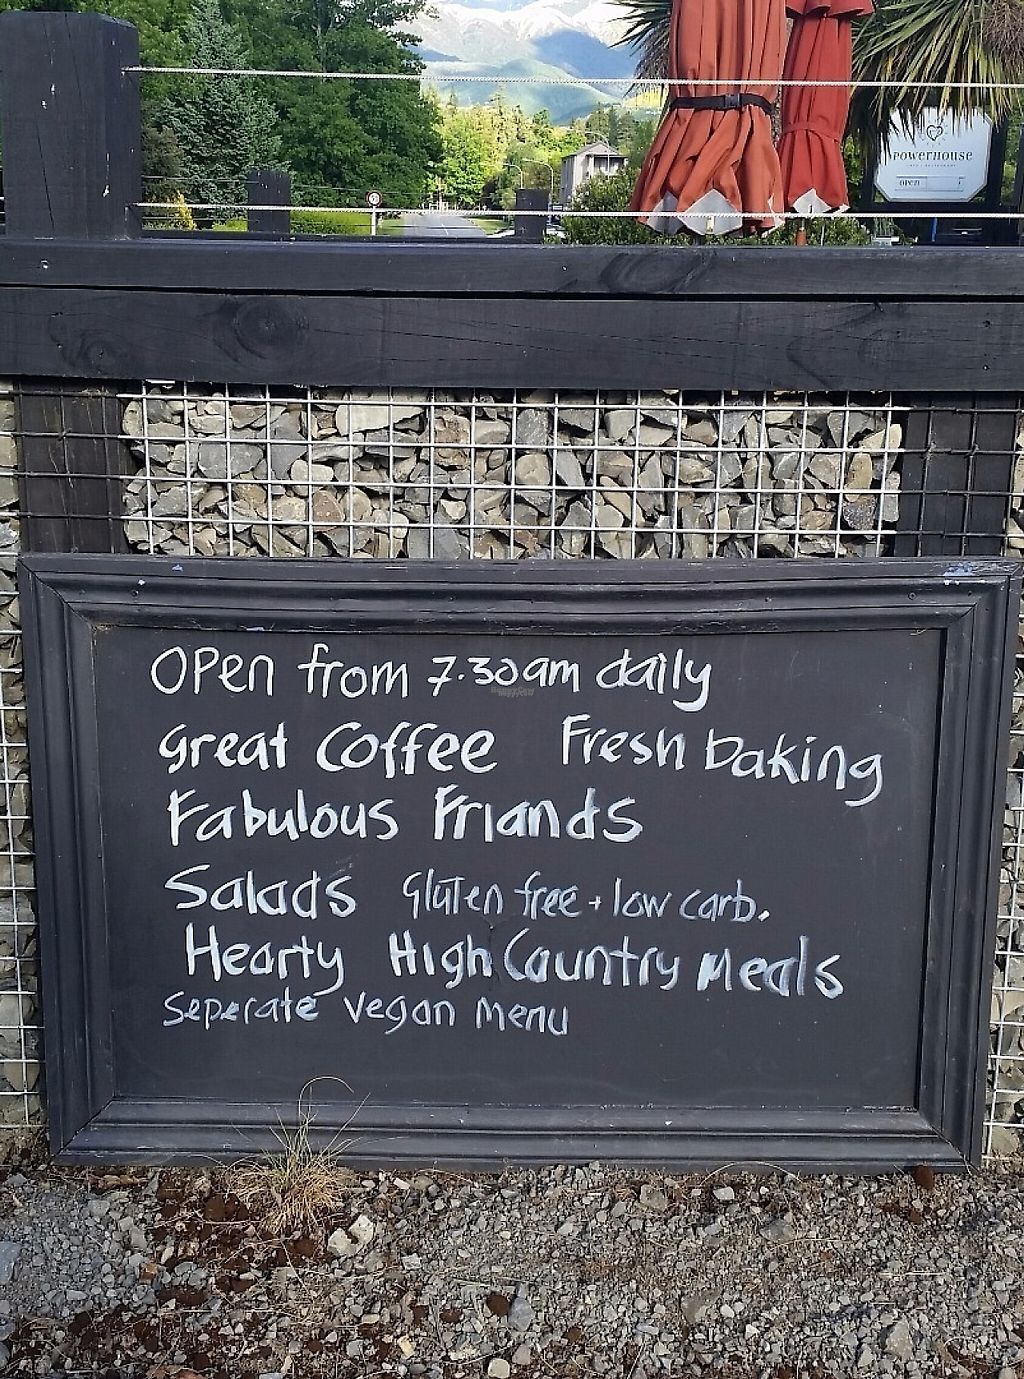 POWERHOUSE
open
Open from 7.30am daily
Great Coffee Fresh baking
Fabulous Friands
Salads Gluten free + low carb.
Hearty High Country Meals
Seperate Vegan Menu